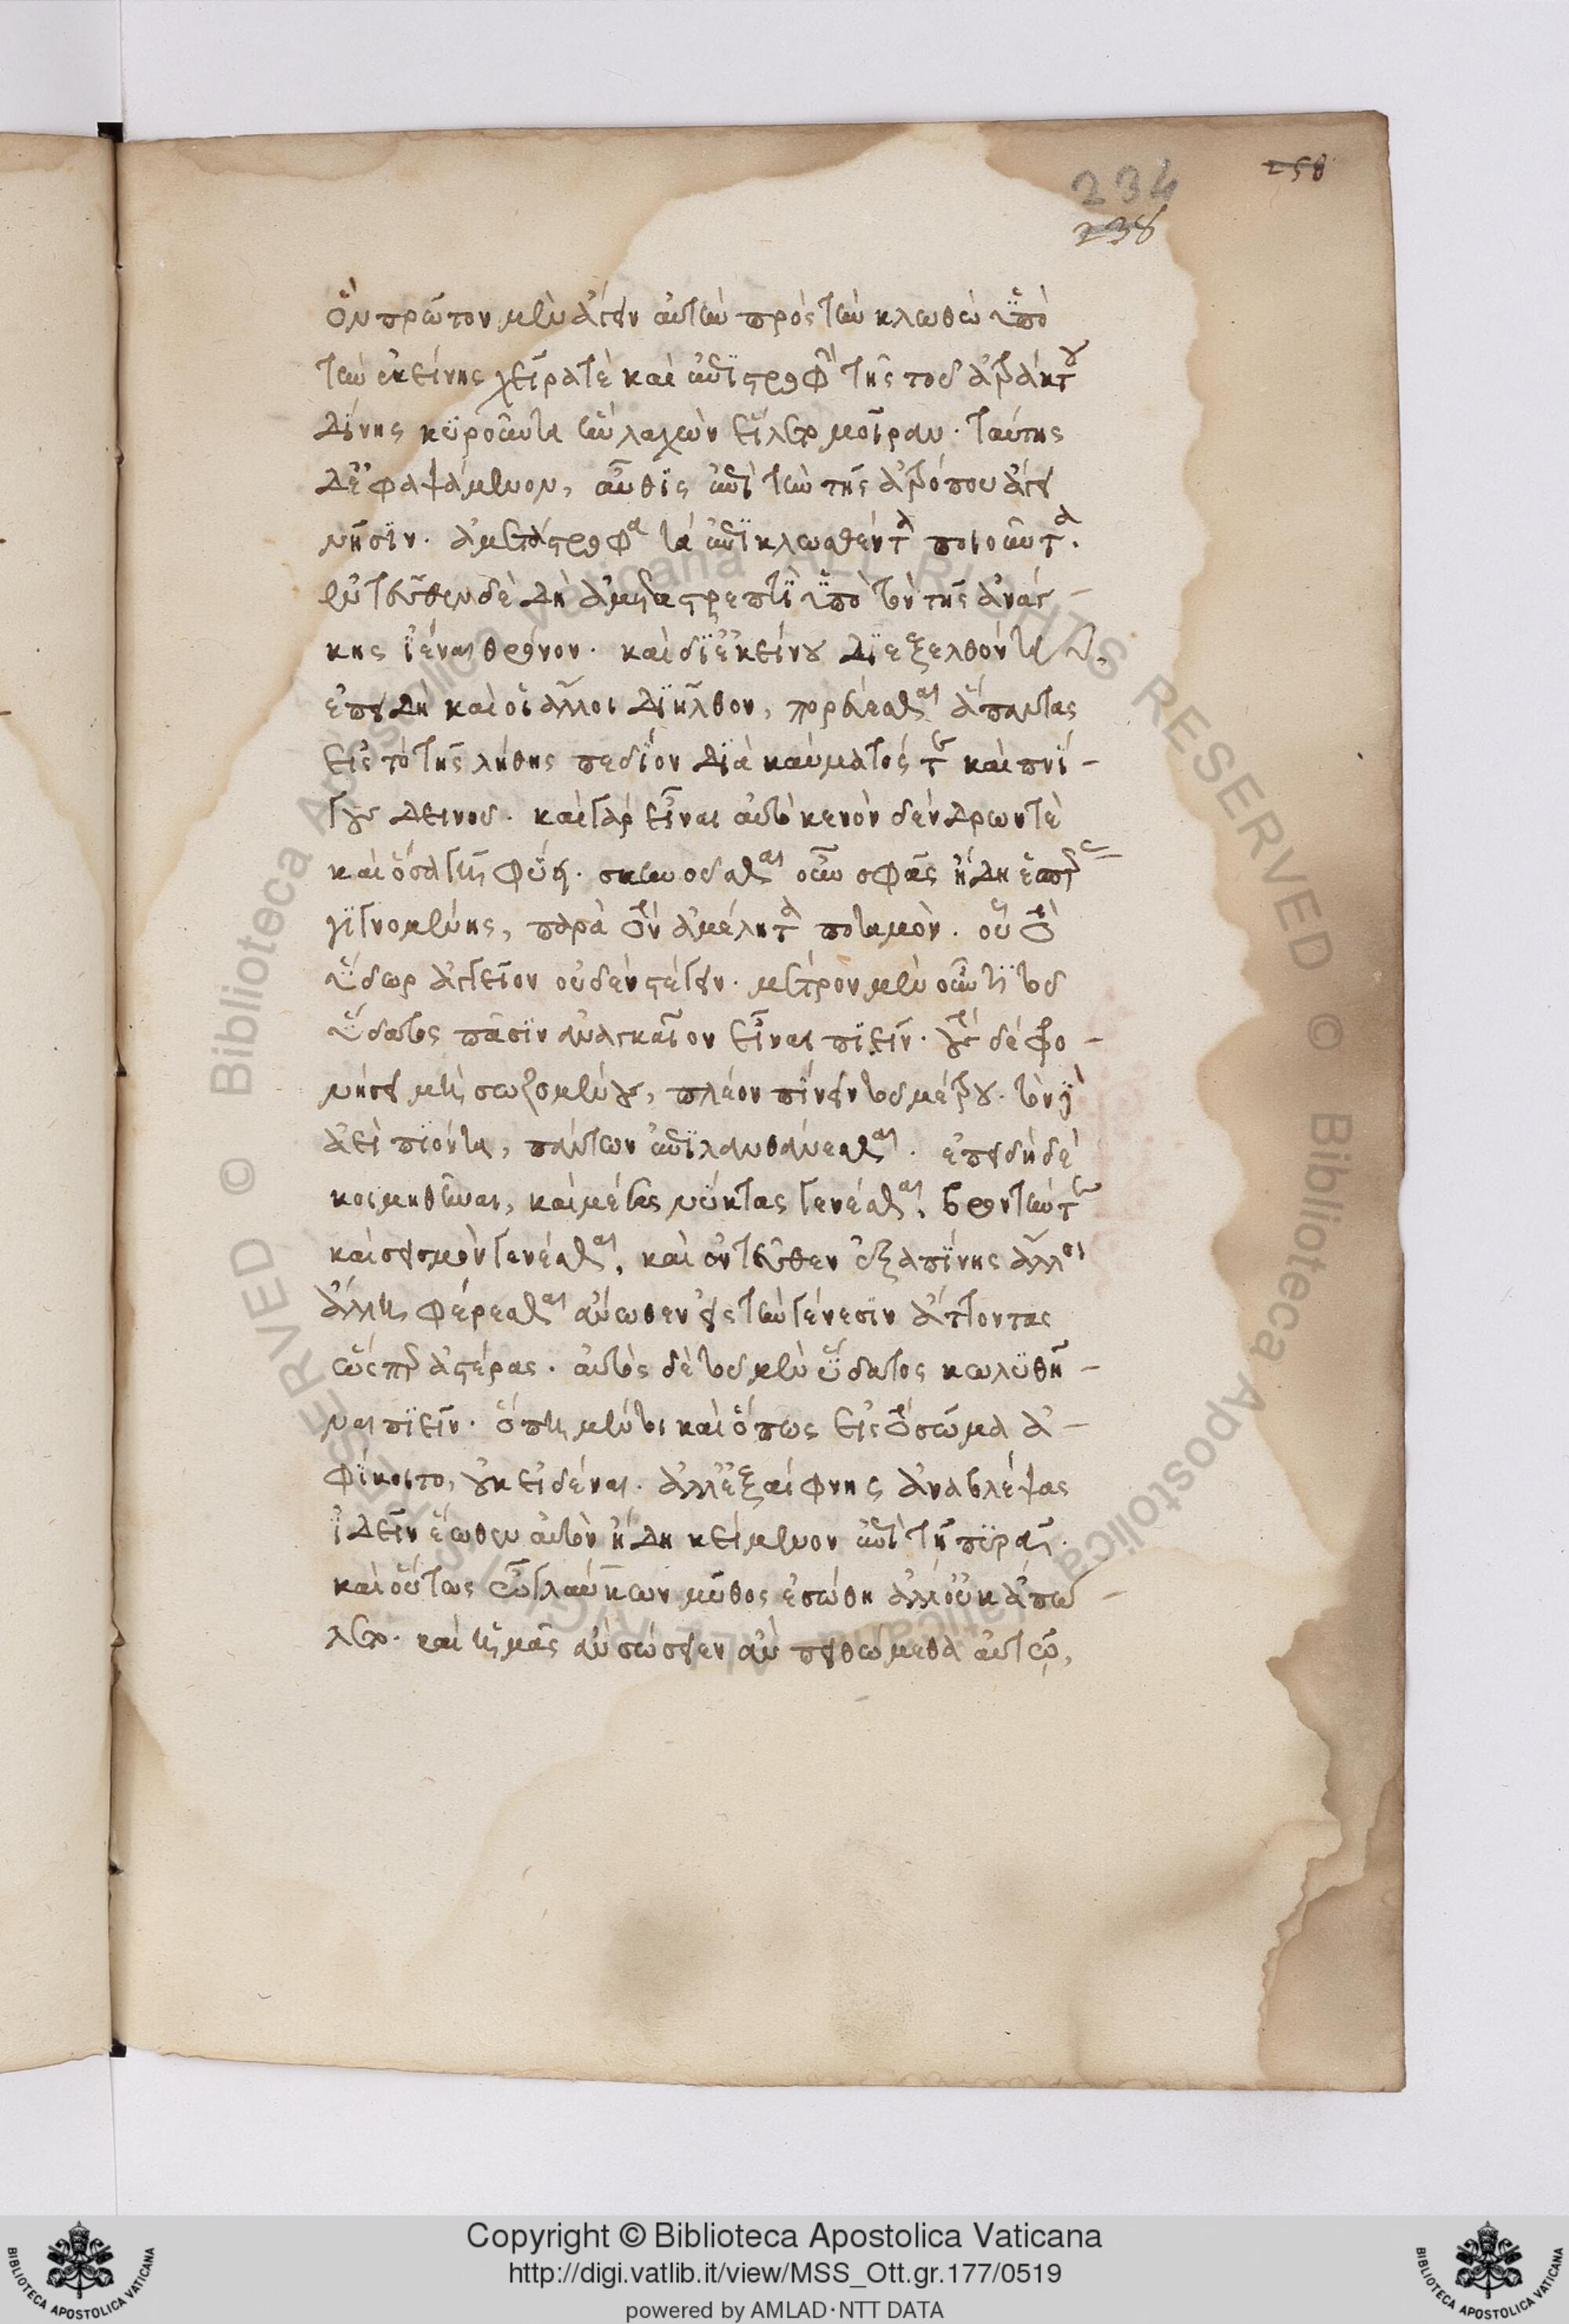 234
238
258
ὃν πρῶτον μὲν ἄγειν αὐτὴν πρὸς τὴν κλωθὼ ὑπὸ
τὴν ἐκείνης χεῖρά τὲ καὶ ἐπιστροφὴν τῆς τοῦ ἀτράκτου
δίνης κυροῦντα ἣν λαχὼν εἵλετο μοῖραν. ταύτης
δ' ἐφαψάμενον, αὖθις ἐπὶ τὴν τῆς ἀτρόπου ἄγειν
νῆσιν. ἀμετάστροφα τὰ ἐπικλωσθέντα ποιοῦντα.
ἐντεῦθεν δὲ δὴ ἀμεταστρεπτὶ ὑπὸ τὸν τῆς ἀνάγ-
κης ἰέναι θρόνον. καὶ δι' ἐκείνου διεξελθόντα
ἐπειδὴ καὶ οἱ ἄλλοι διῆλθον, πορεύεσθαι ἅπαντας
εἰς τὸ τῆς λήθης πεδίον διὰ καύματός τε καὶ πνί-
γους δεινοῦ. καὶ γὰρ εἶναι αὐτὸ κενὸν δένδρων τὲ
καὶ ὅσα γῆ φύει. σκηνοῦσθαι οὖν σφᾶς ἤδη ἑσπέρας
γιγνομένης, παρὰ τὸν ἀμέλητα ποταμόν. οὗ τὸ
ὕδωρ ἀγγεῖον οὐδὲν στέγειν. μέτρον μὲν οὖν τι τοῦ
ὕδατος πᾶσιν ἀναγκαῖον εἶναι πιεῖν. τοὺς δὲ φρο-
νήσει μὴ σωζομένους, πλέον πίνειν τοῦ μέτρου. τὸν δὲ
ἀεὶ πιόντα, πάντων ἐπιλανθάνεσθαι. ἐπειδὴ δὲ
κοιμηθῆναι, καὶ μέσας νύκτας γενέσθαι, βροντήν τε
καὶ σεισμὸν γενέσθαι, καὶ ἐντεῦθεν ἐξαπίνης ἄλλον
ἄλλῃ φέρεσθαι ἄνωθεν εἰς τὴν γένεσιν ἄττοντας
ὥσπερ ἀστέρας. αὐτὸς δὲ τοῦ μὲν ὕδατος κωλυθῆ-
ναι πιεῖν. ὅπῃ μέντοι καὶ ὅπως εἰς τὸ σῶμα ἀ-
φίκοιτο, οὐκ εἰδέναι. ἀλλ' ἐξαίφνης ἀναβλέψας
ἰδεῖν ἕωθεν αὐτὸν ἤδη κείμενον ἐπὶ τῇ πυρᾷ.
καὶ οὕτως ὦ γλαύκων μῦθος ἐσώθη ἀλλ' οὐκ ἀπώ-
λετο. καὶ ἡμᾶς ἂν σώσειεν ἂν πειθώμεθα αὐτῷ,
Copyright © Biblioteca Apostolica Vaticana
http://digi.vatlib.it/view/MSS_Ott.gr.177/0519
powered by AMLAD·NTT DATA